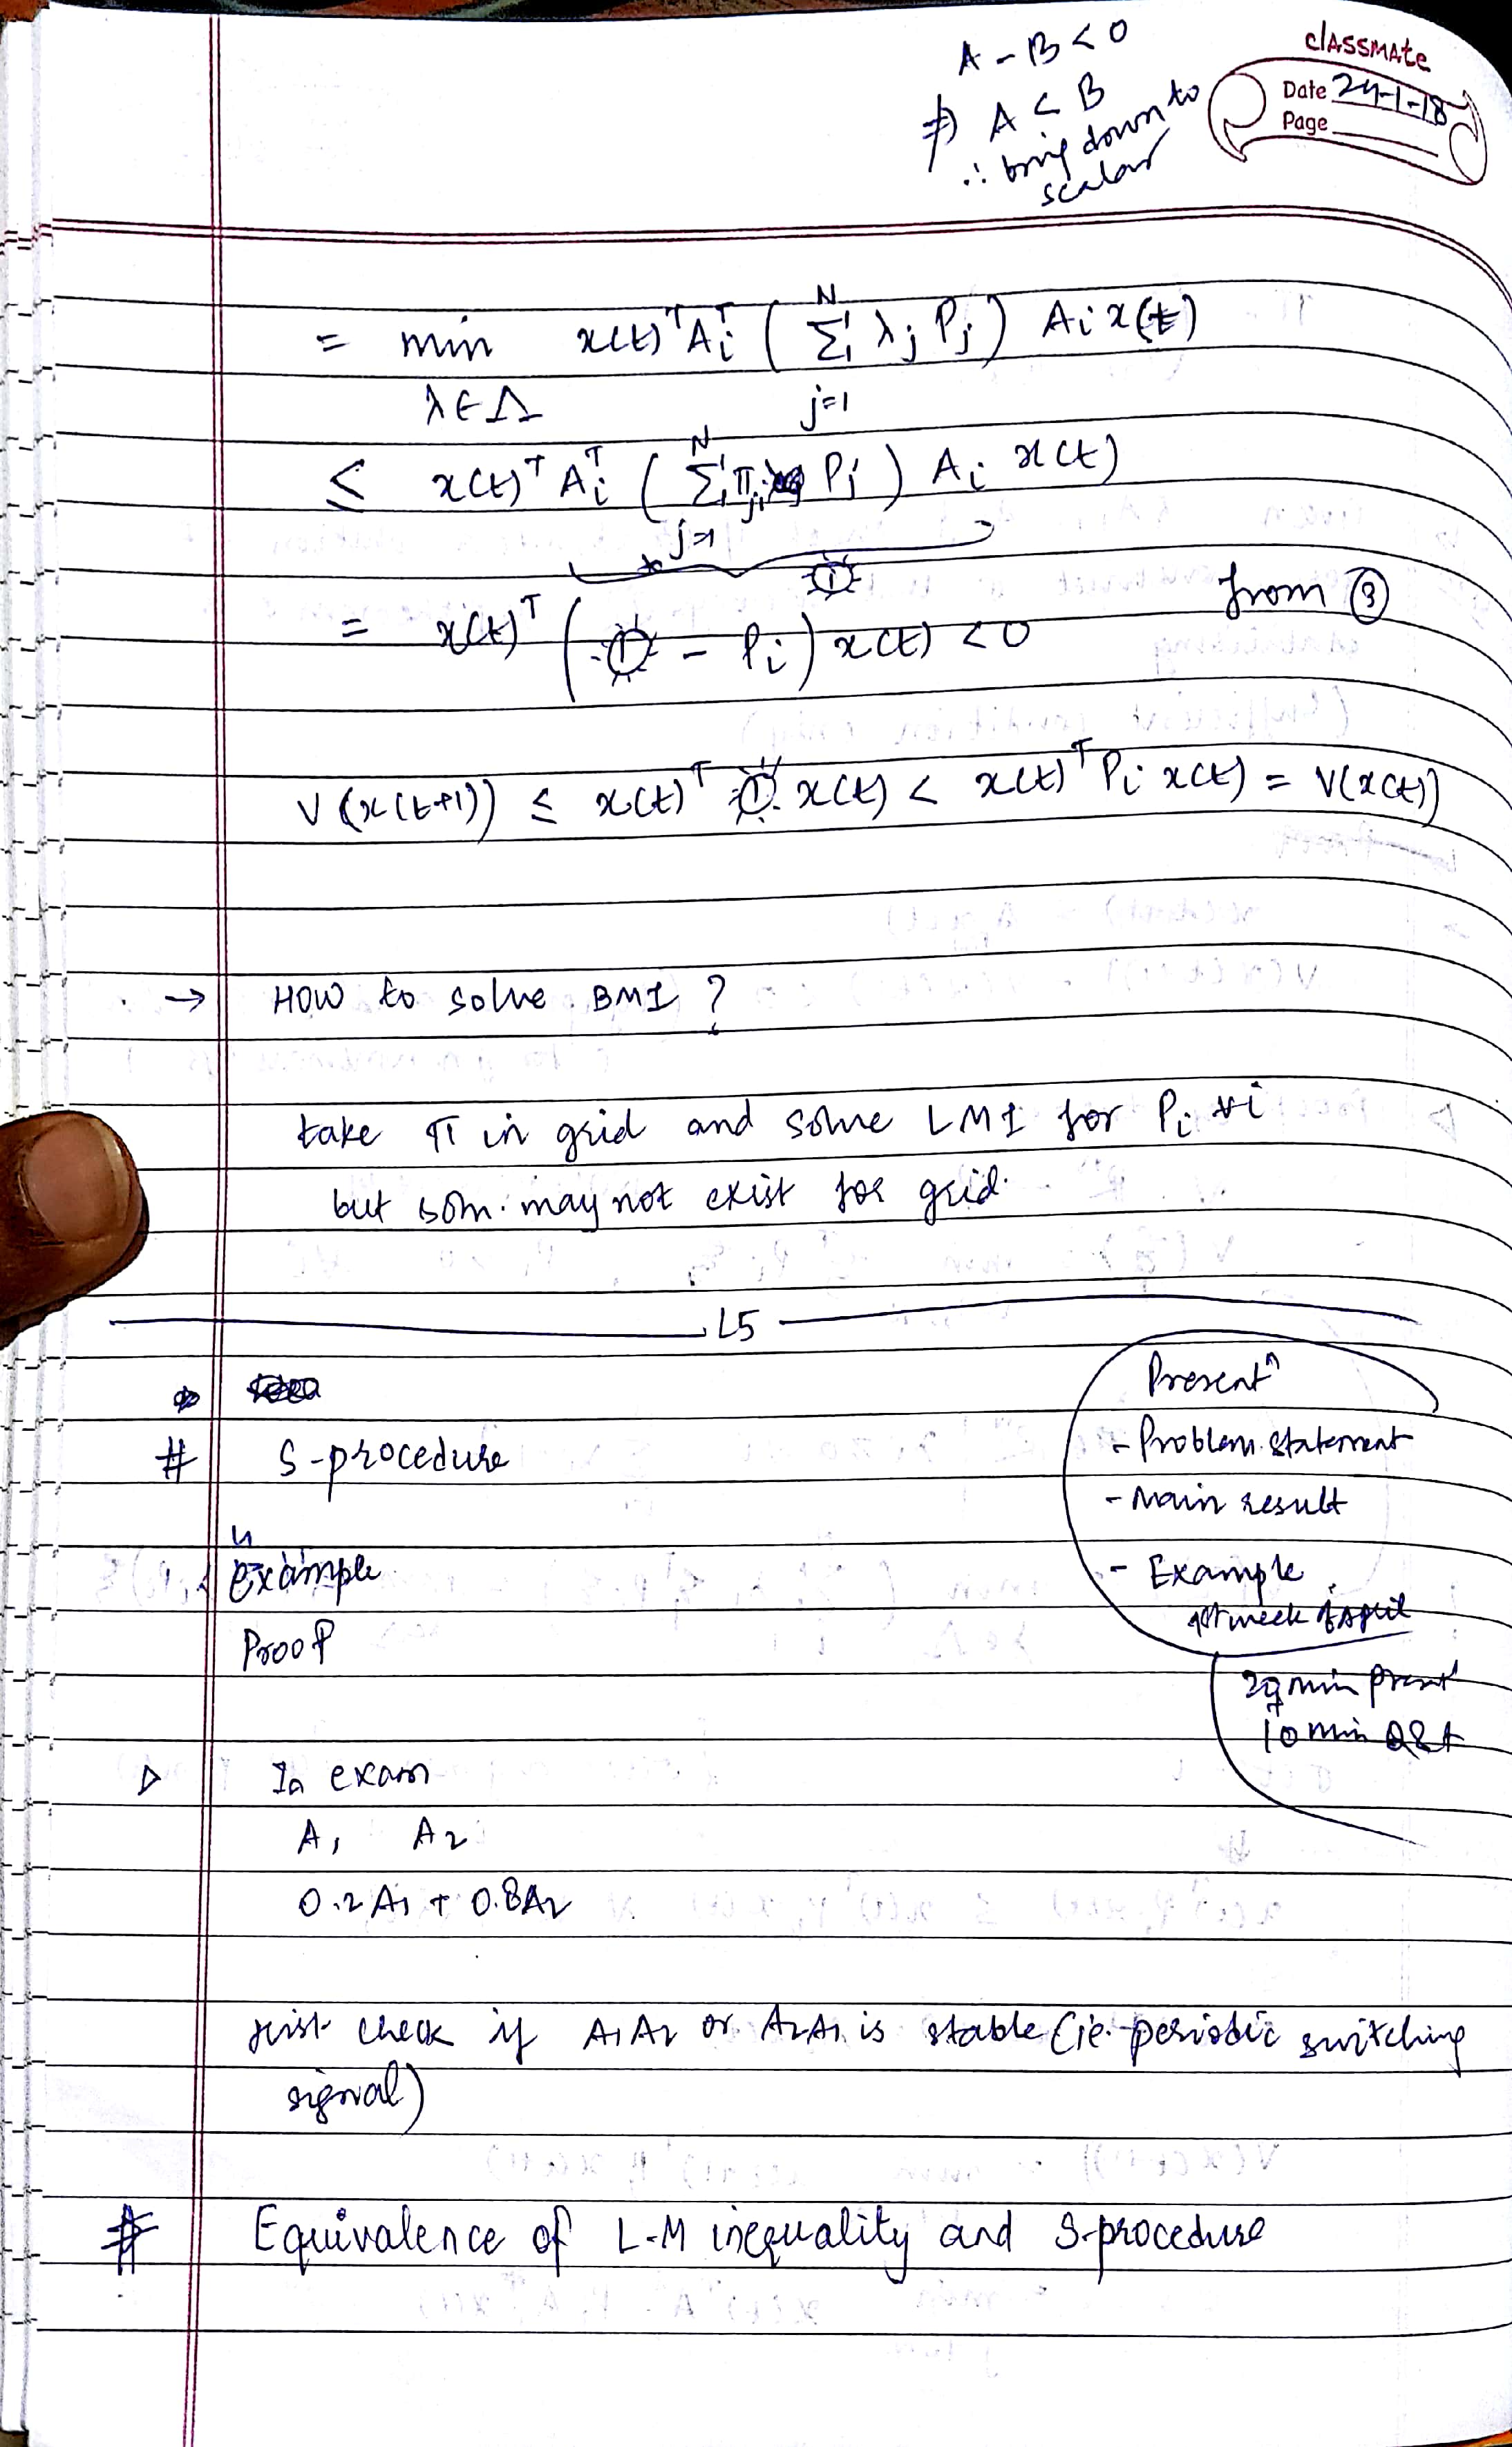 A - B < 0
⇏ A < B
∴ bring down to
scalar
classmate
Date 24-1-18
Page
= min x(t)ᵀ Aᵢᵀ ( Σ λⱼ Pⱼ ) Aᵢ x(t)
λ ∈ Λ N j=1
≤ x(t)ᵀ Aᵢᵀ ( Σ πⱼᵢ Pⱼ ) Aᵢ x(t)
N j=1
①
= x(t)ᵀ ( ① - Pᵢ ) x(t) < 0 from ③
V(x(t+1)) ≤ x(t)ᵀ ① x(t) < x(t)ᵀ Pᵢ x(t) = V(x(t))
→ HOW to solve BMI ?
take π in grid and solve LMI for Pᵢ ∀i
but soln. may not exist for grid.
L5
# S-procedure
Example
Proof
Presentⁿ
- Problem statement
- Main result
- Example
1st week of April
min present
10 min Q&A
▷ In exam
A₁ A₂
0.2 A₁ + 0.8 A₂
just check if A₁A₂ or A₂A₁ is stable (ie. periodic switching
signal)
# Equivalence of L-M inequality and S-procedure